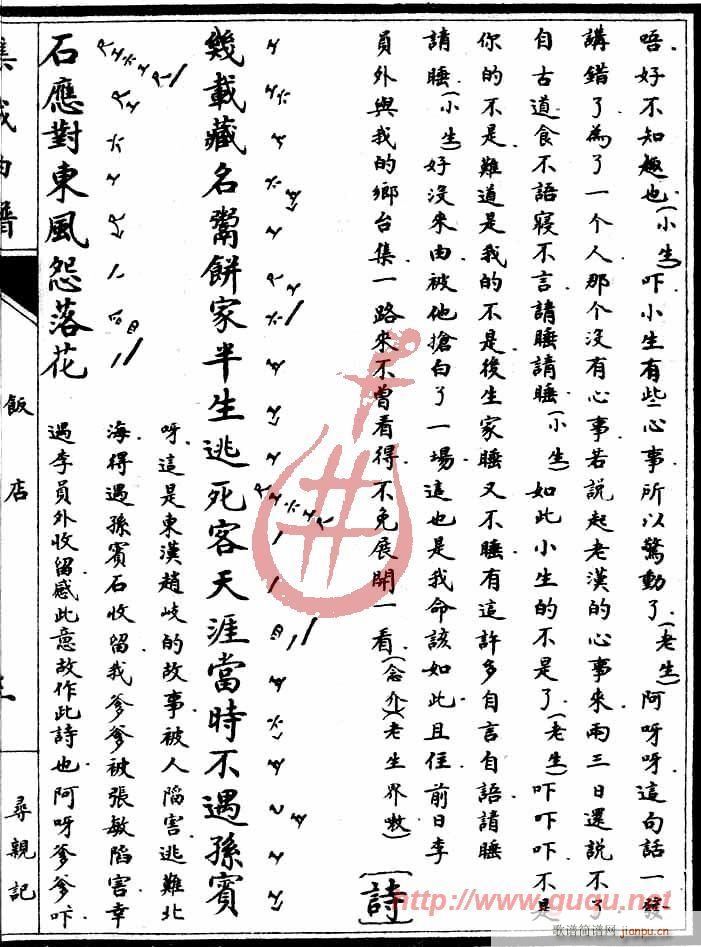 唔好不知趣也(小生)吓小生有些心事所以驚動了(老生)阿呀呀這句話一發
講錯了為了一个人那个沒有心事若說起老漢的心事來兩三日還說不了
自古道食不語寢不言請睡請睡(小生)如此小生的不是了(老生)吓吓吓不是
你的不是難道是我的不是後生家睡又不睡有這許多自言自語請睡
請睡(小生)好沒來由被他搶白了一場這也是我命該如此且住前日李
員外與我的鄉台集一路來不曾看得不免展開一看(念介)(老生界嗽)
〔詩〕
幾載藏名鬻餅家半生逃死客天涯當時不遇孫賓
石應對東風怨落花
呀這是東漢趙岐的故事被人陷害逃難北
海得遇孫賓石收留我爹爹被張敏陷害幸
遇李員外收留感此意故作此詩也阿呀爹爹吓
集成曲譜
飯店
尋親記
http://www.guqu.net
歌谱简谱网
jianpu.cn